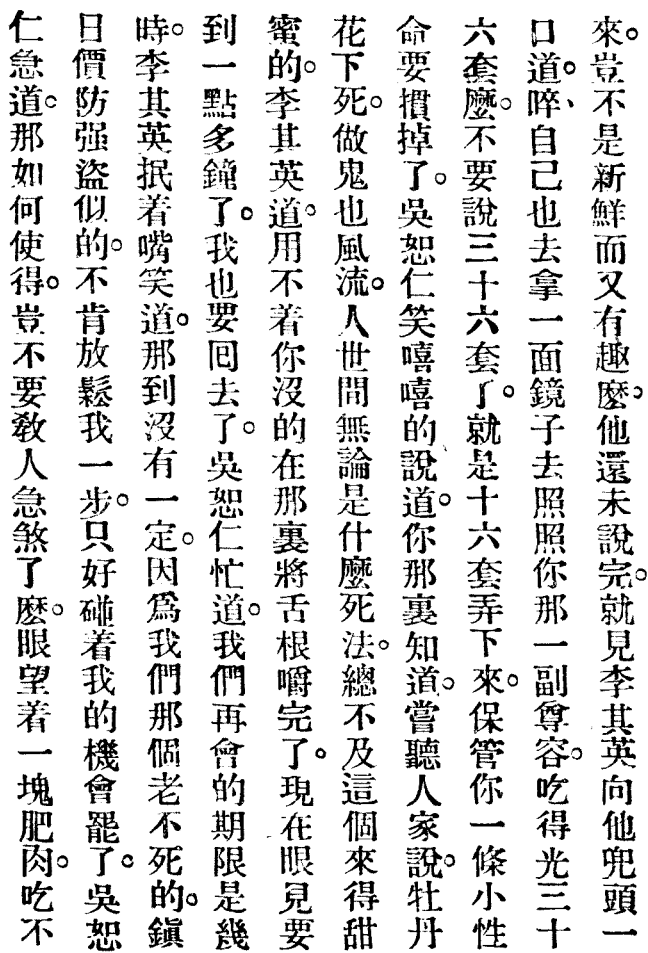 來。豈不是新鮮而又有趣麽。他還未說完。就見李其英向他兜頭一
口道。啐、自己也去拿一面鏡子去照照你那一副尊容。吃得光三十
六套麽。不要說三十六套了。就是十六套弄下來。保管你一條小性
命要摜掉了。吳恕仁笑嘻嘻的說道。你那裏知道。嘗聽人家說。牡丹
花下死。做鬼也風流。人世間無論是什麽死法。總不及這個來得甜
蜜的。李其英道。用不着你沒的在那裏將舌根嚼完了。現在眼見要
到一點多鐘了。我也要囘去了。吳恕仁忙道。我們再會的期限是幾
時。李其英抿着嘴笑道。那到沒有一定。因爲我們那個老不死的。鎭
日價防强盜似的。不肯放鬆我一步。只好碰着我的機會罷了。吳恕
仁急道。那如何使得。豈不要敎人急煞了麽。眼望着一塊肥肉。吃不